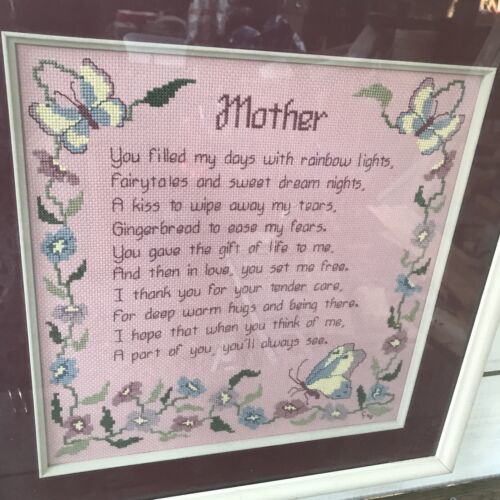 Mother
You filled my days with rainbow lights,
Fairytales and sweet dream nights,
A kiss to wipe away my tears,
Gingerbread to ease my fears.
You gave the gift of life to me,
And then in love, you set me free.
I thank you for your tender care,
For deep warm hugs and being there.
I hope that when you think of me,
A part of you, you'll always see.